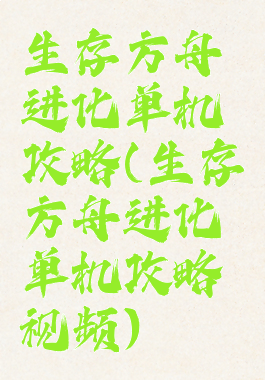 生存方舟
进化单机
攻略(生存
方舟进化
单机攻略
视频)